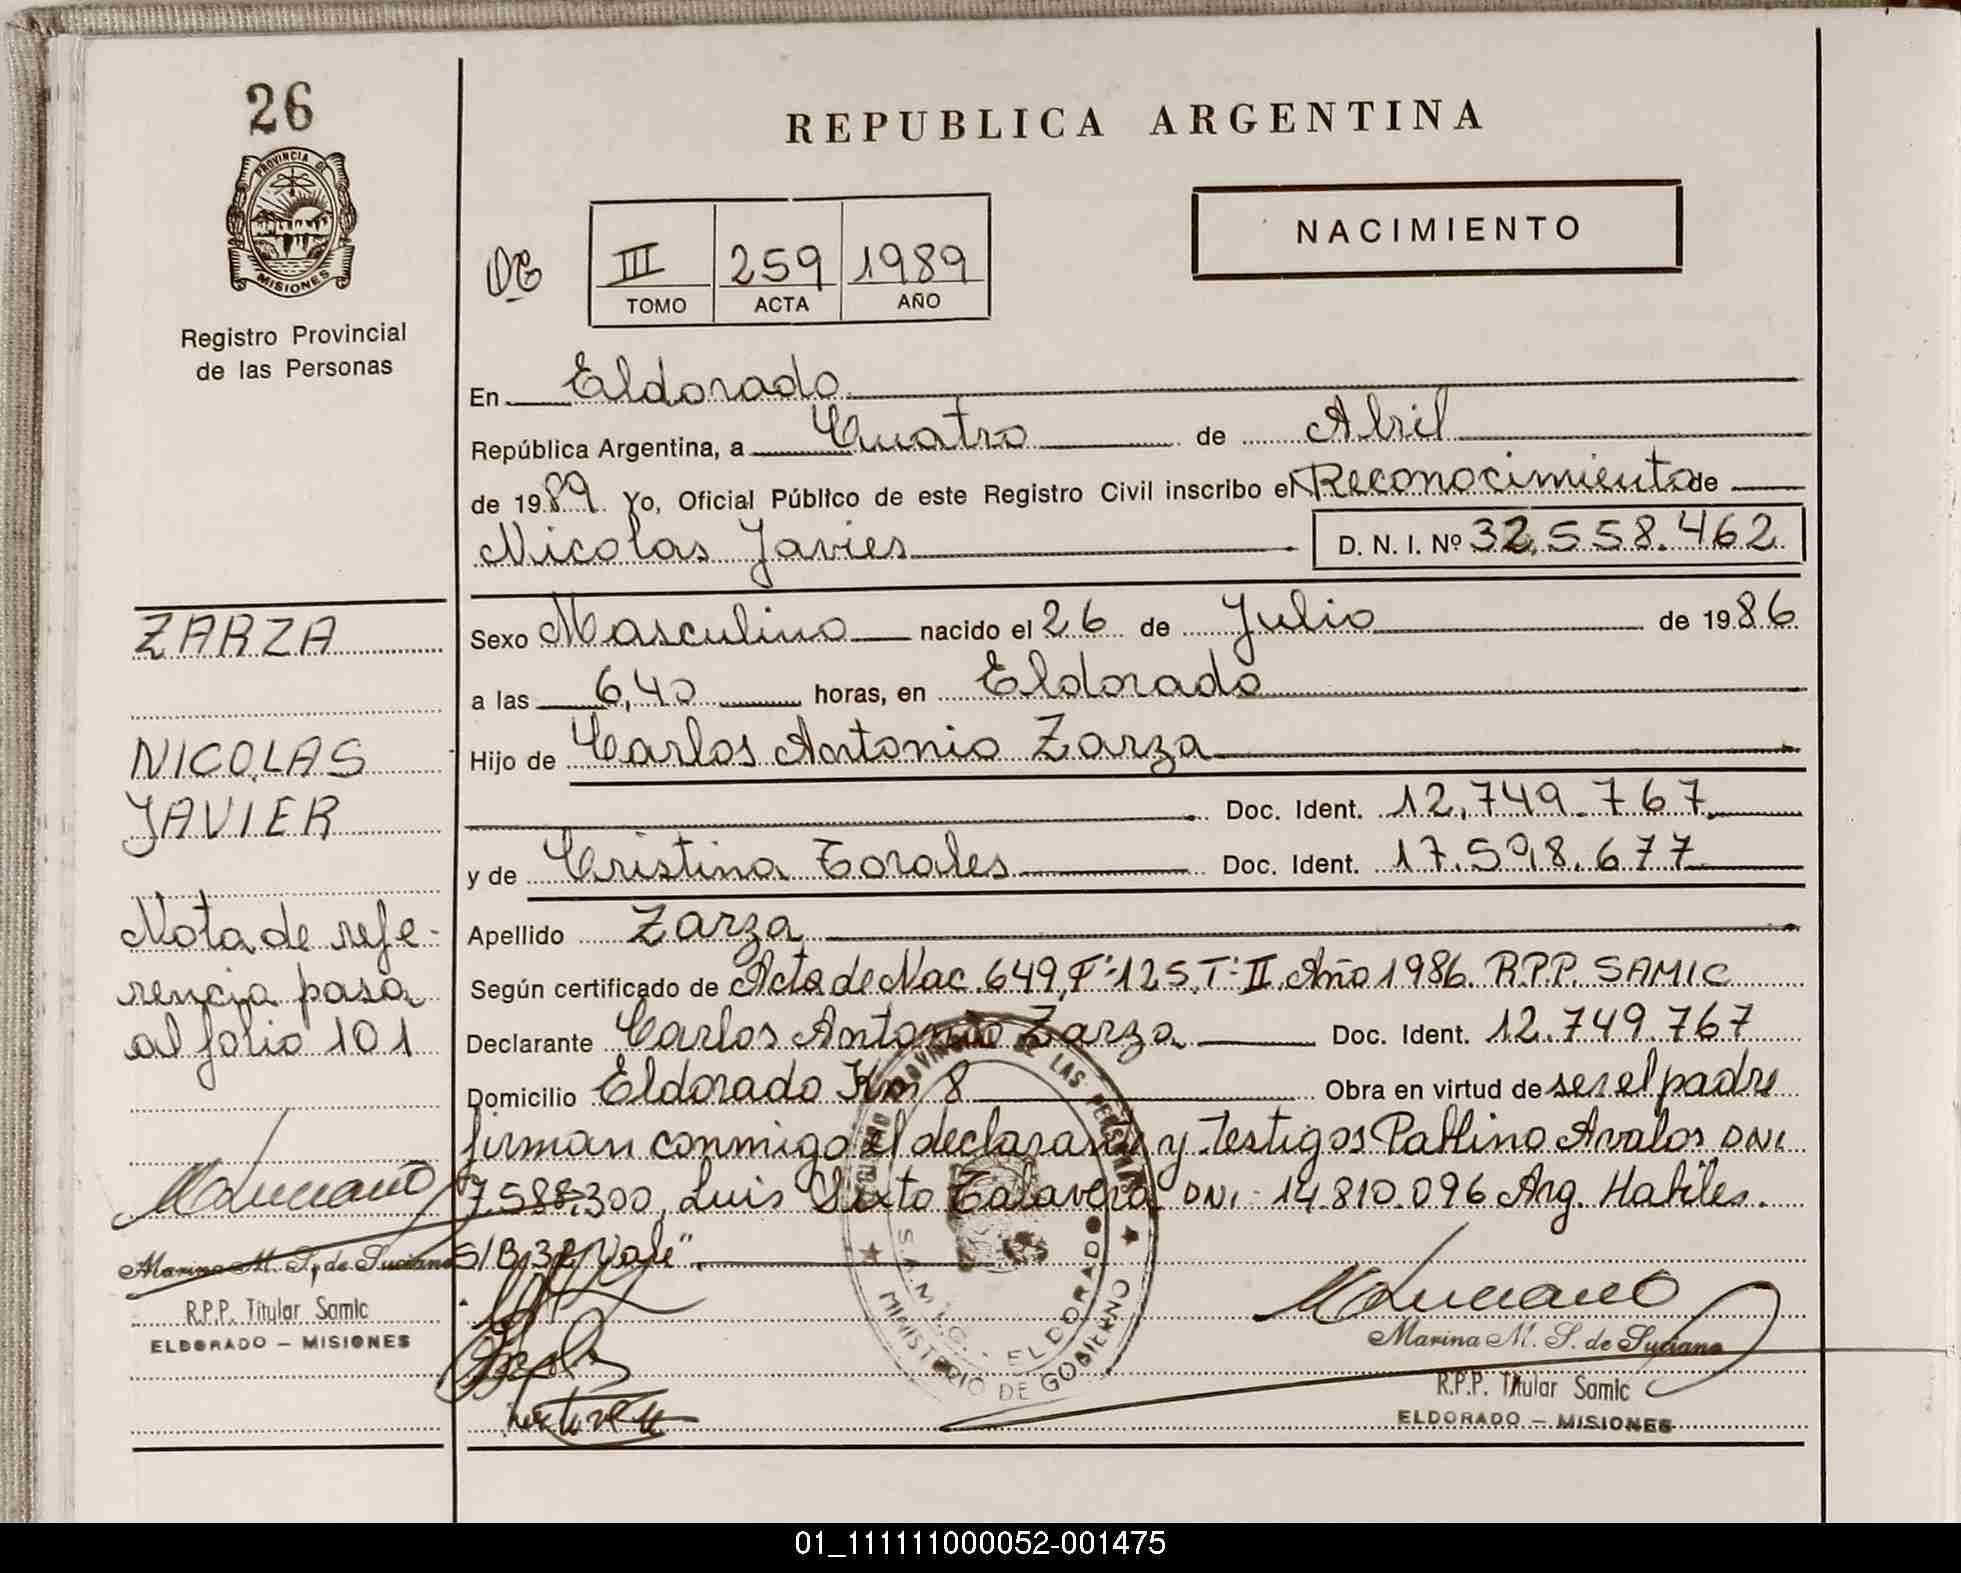 26
PROVINCIA DE
MISIONES
Registro Provincial
de las Personas
REPUBLICA ARGENTINA
NACIMIENTO
III 259 1989
TOMO ACTA AÑO
En Eldorado
República Argentina, a Cuatro de Abril
de 1989. Yo, Oficial Público de este Registro Civil inscribo el Reconocimiento de
Nicolas Javier D. N. I. Nº 32.558.462
Sexo Masculino nacido el 26 de Julio de 1986
a las 6,40 horas, en Eldorado
Hijo de Carlos Antonio Zarza
Doc. Ident. 12.749.767
y de Cristina Torales Doc. Ident. 17.598.677
Apellido Zarza
Según certificado de Acta de Nac. 649, Fº-125, Tº-II. Año 1986. R.P.P. SAMIC
Declarante Carlos Antonio Zarza Doc. Ident. 12.749.767
Domicilio Eldorado Km 8 Obra en virtud de ser el padre
firman conmigo el declarante y testigos Pablino Avalos DNI
7.588.300, Luis Sixto Talavera DNI- 14.810.096 Arg. Habiles.
S/B. "Vale"
ZARZA
NICOLAS
JAVIER
Nota de refe-
rencia pasa
al folio 101
Marina M. S. de Suciano
R.P.P. Titular Samic
ELDORADO - MISIONES
PROVINCIAL DE LAS PERSONAS
S.A.M.I.C. - ELDORADO
MINISTERIO DE GOBIERNO
Marina M. S. de Suciano
R.P.P. Titular Samic
ELDORADO - MISIONES
01_111111000052-001475